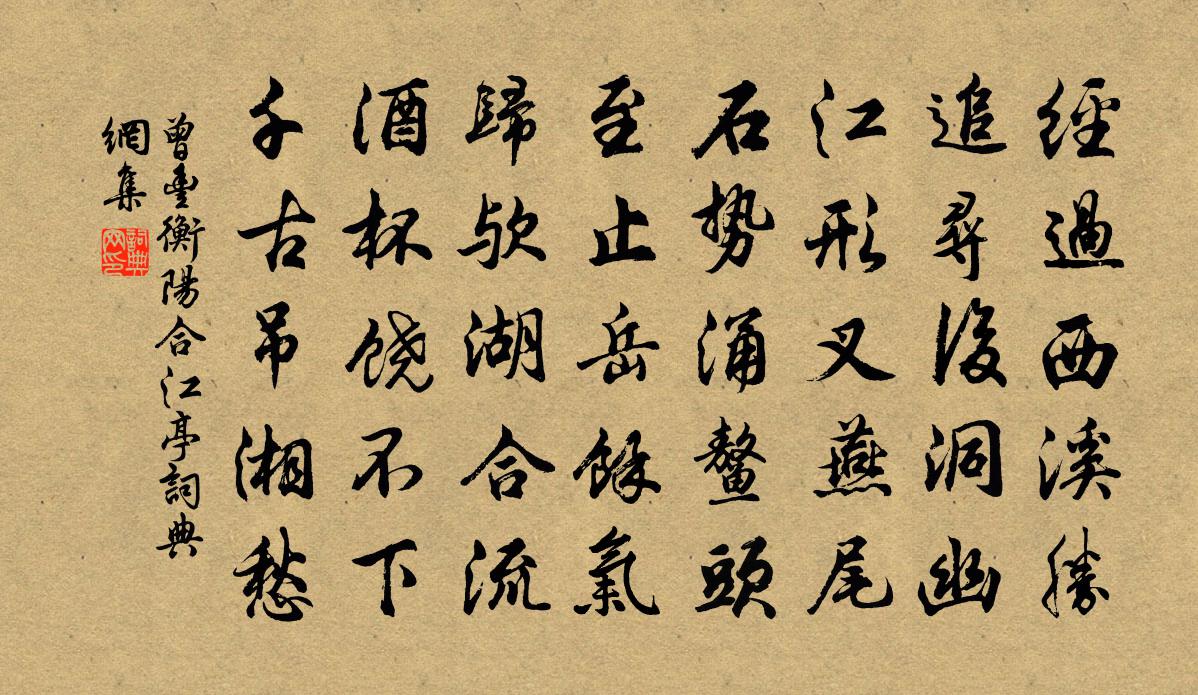 經過西溪勝
追尋後洞幽
江形叉燕尾
石势涌鳌頭
至止岳餘氣
歸欤湖合流
酒杯饶不下
千古吊湘愁
曾豐衡陽合江亭詞典
網集
詞典
网印